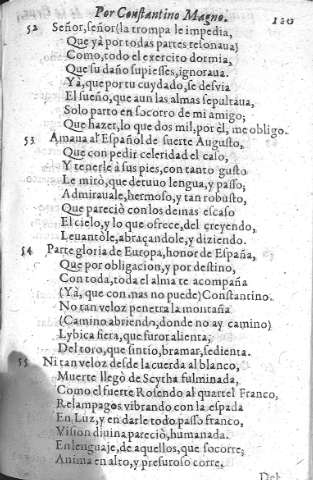 Por Conſtantino Magno. 120
52 Señor, ſeñor (la trompa le impedia,
Que yà por todas partes reſonaua)
Como, todo el exercito dormia,
Que ſu daño ſupieſſes, ignoraua.
Yà, que por tu cuydado, ſe deſvia
El ſueño, que aun las almas ſepultaua,
Solo parto en ſocorro de mi amigo;
Que hazer, lo que dos mil, por èl, me obligo.
53 Amaua al Eſpañol de ſuerte Auguſto,
Que con pedir celeridad el caſo,
Y tenerle à ſus pies, con tanto guſto
Le mirò, que detuuo lengua, y paſſo,
Admirauale, hermoſo, y tan robuſto,
Que pareciò con los demas eſcaſo
El cielo, y lo que ofrece, del, creyendo,
Leuantòle, abraçandole, y diziendo.
54 Parte gloria de Europa, honor de Eſpaña,
Que por obligacion, y por deſtino,
Con toda, toda el alma te acompaña
(Yà, que con mas no puede) Conſtantino.
No tan veloz penetra la montaña
(Camino abriendo, donde no ay camino)
Lybica fiera, que furor alienta;
Del toro, que ſintio, bramar, ſedienta.
55 Ni tan veloz deſde la cuerda al blanco,
Muerte llegò de Scytha fulminada,
Como el fuerte Roſendo al quartel Franco,
Relampagos vibrando con la eſpada
En Luz, y en darle todo paſſo franco,
Viſion diuina pareciò, humanada.
En lenguaje, de aquellos, que ſocorre;
Anima en alto, y preſuroſo corre.